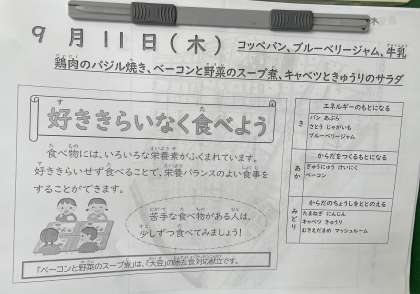 9月11日(木) コッペパン、ブルーベリージャム、牛乳
鶏肉のバジル焼き、ベーコンと野菜のスープ煮、キャベツときゅうりのサラダ
好ききらいなく食べよう
食べ物には、いろいろな栄養素がふくまれています。
好ききらいせず食べることで、栄養バランスのよい食事を
することができます。
苦手な食べ物がある人は、
少しずつ食べてみましょう!
「ベーコンと野菜のスープ煮」は、「大豆」の除去食対応献立です。
エネルギーのもとになる
き
パン あぶら
さとう じゃがいも
ブルーベリージャム
からだをつくるもとになる
あか
ぎゅうにゅう けいにく
ベーコン
からだのちょうしをととのえる
みどり
たまねぎ にんじん
キャベツ きゅうり
むきえだまめ マッシュルーム